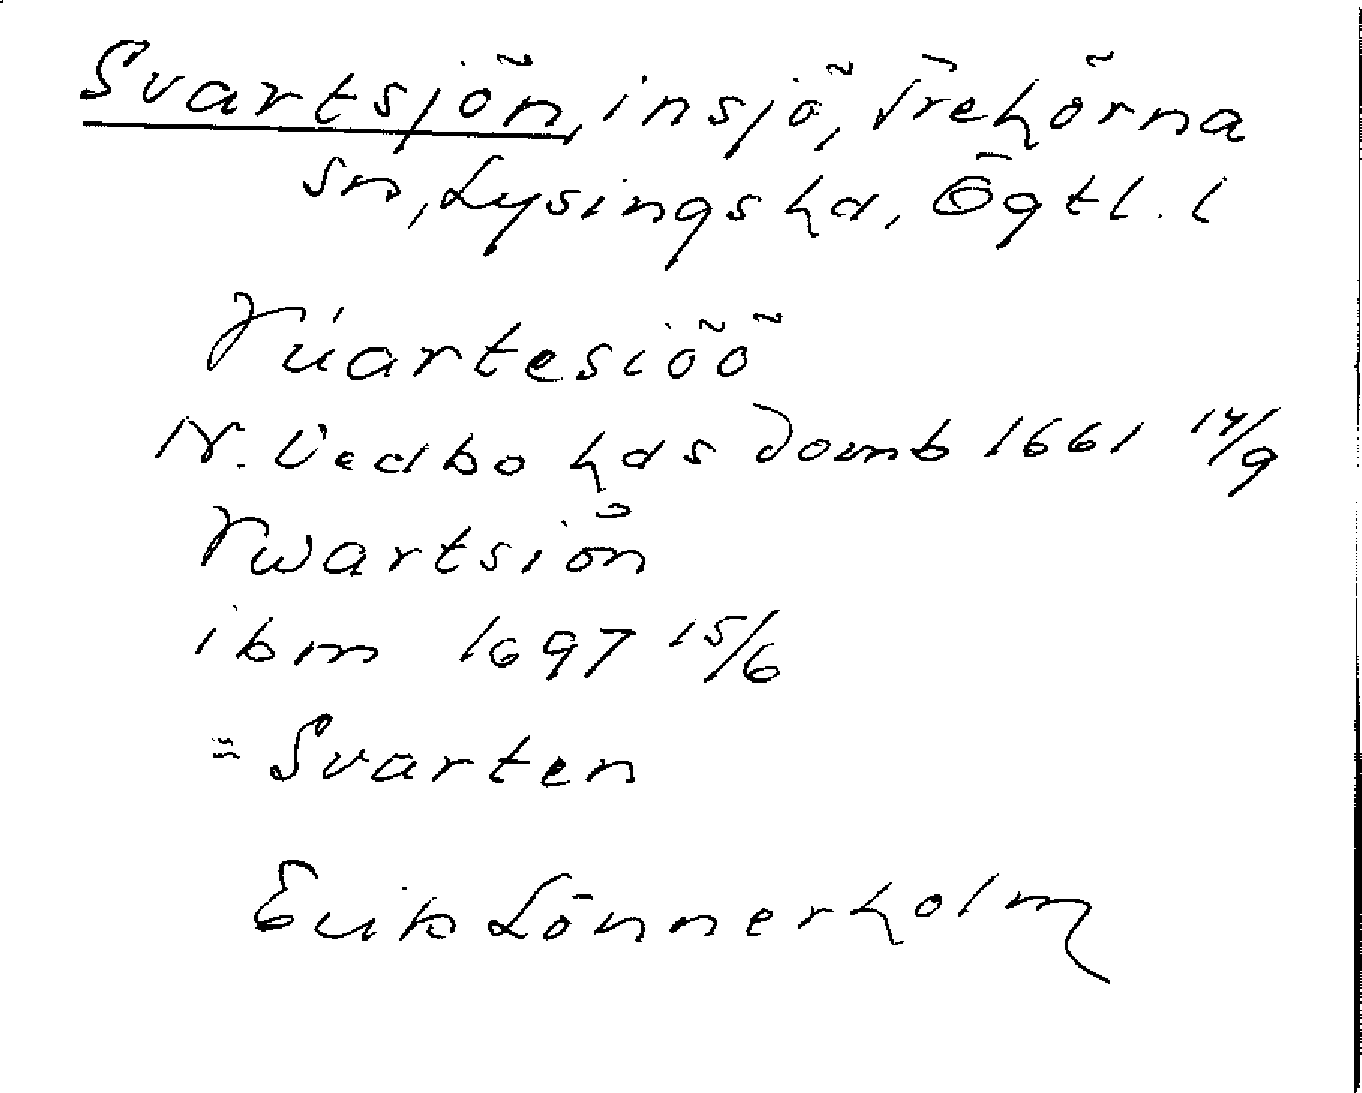 Svartsjön, insjö, Trehörna
sn, Lysings hd, Ögtl. l
Suartesiöö
N. Vedbo hds domb 1661 14/9
Swartsiön
ibm 1697 15/6
= Svarten
Erik Lönnerholm